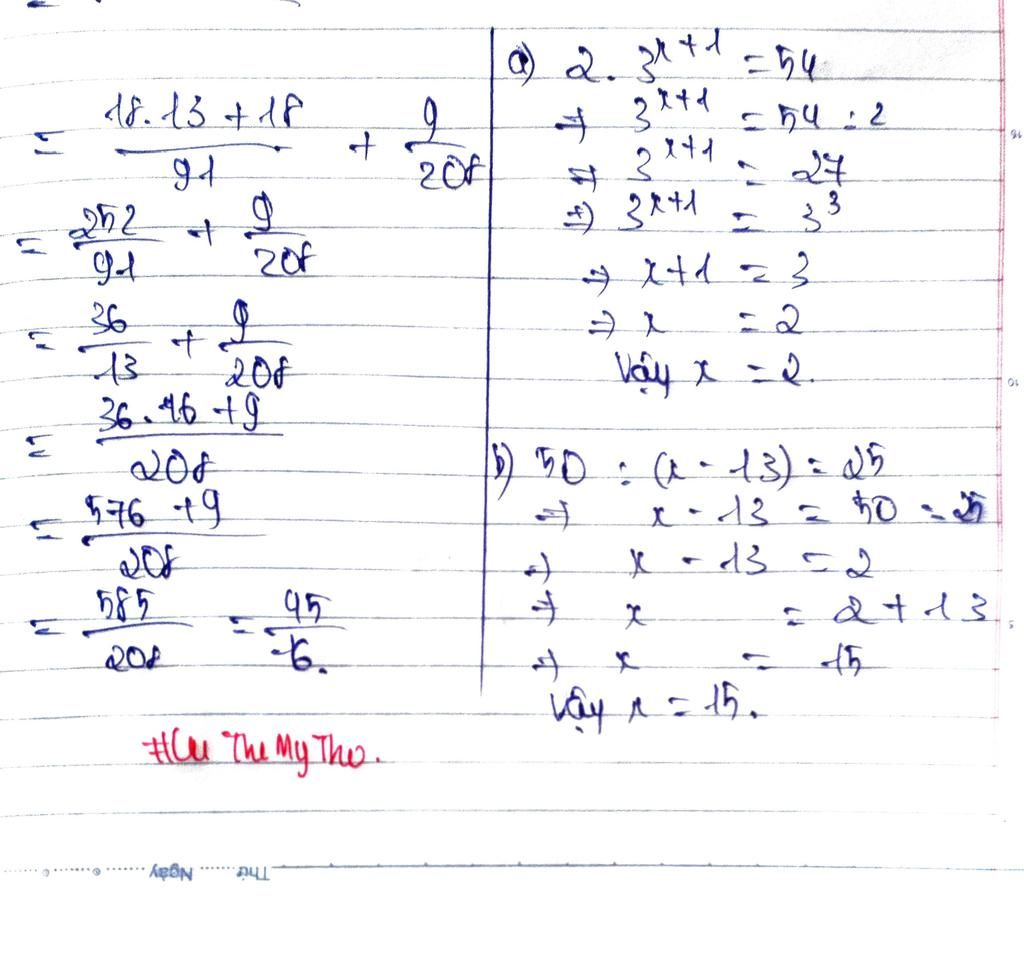 = \frac{18.13 + 18}{91} + \frac{9}{208}
= \frac{252}{91} + \frac{9}{208}
= \frac{36}{13} + \frac{9}{208}
= \frac{36.16 + 9}{208}
= \frac{576 + 9}{208}
= \frac{585}{208} = \frac{45}{16}.
a) 2. 3^{x+1} = 54
⇒ 3^{x+1} = 54 : 2
⇒ 3^{x+1} = 27
⇒ 3^{x+1} = 3^3
⇒ x+1 = 3
⇒ x = 2
Vậy x = 2.
b) 50 : (x - 13) = 25
⇒ x - 13 = 50 : 25
⇒ x - 13 = 2
⇒ x = 2 + 13
⇒ x = 15
Vậy x = 15.
Thứ Ngày